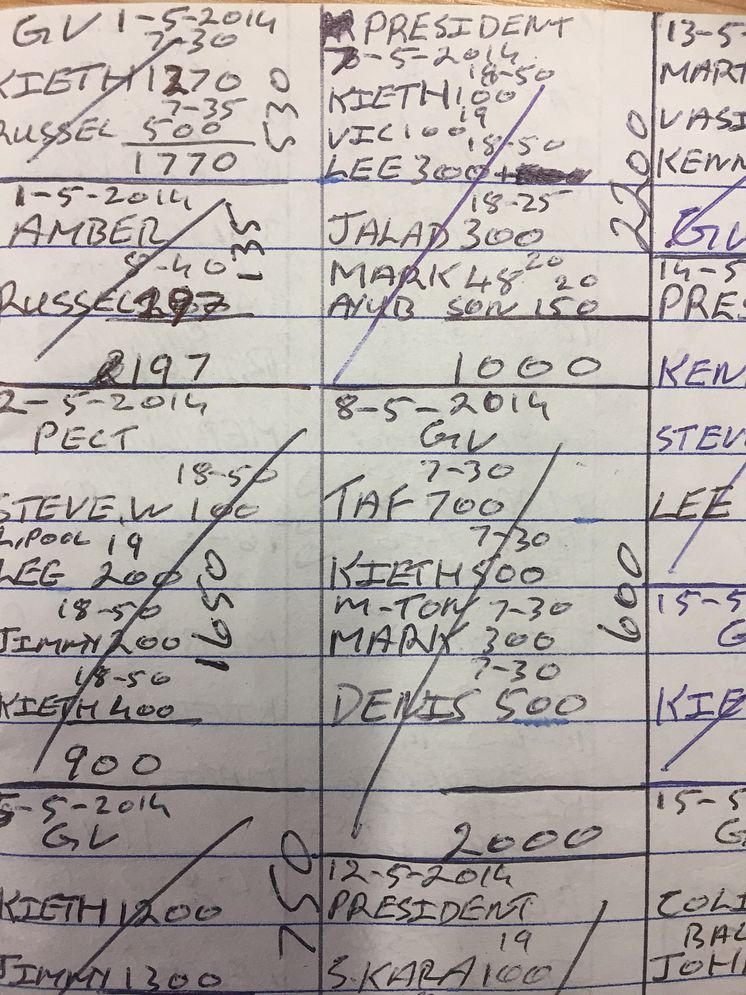 GV 1-5-2014
7-30
KIETH 1270
7-35
RUSSEL 500
1770
530
1-5-2014
AMBER
135
9-40
RUSSEL 297
2197
2-5-2014
PECT
18-50
STEVE.W 100
L,POOL 19
LEE 200
18-50
JIMMY 200
18-50
KIETH 400
1650
900
5-2014
GV
KIETH 1200
JIMMY 1300
750
PRESIDENT
7-5-2014
18-50
KIETH 100
19
VIC 100
18-50
LEE 300+
18-25
JALAD 300
20
MARK 48 20
AYUB SON 150
2200
1000
8-5-2014
GV
7-30
TAF 700
7-30
KIETH 500
M-TON 7-30
MARK 300
7-30
DENIS 500
600
2000
12-5-2014
PRESIDENT
19
S.KARA 100
13-5-
MART
VASI
KENN
GV
14-5
PRES
KEN
STEV
LEE
15-5
G
KIE
15-5
G
COLI
BAL
JOHN